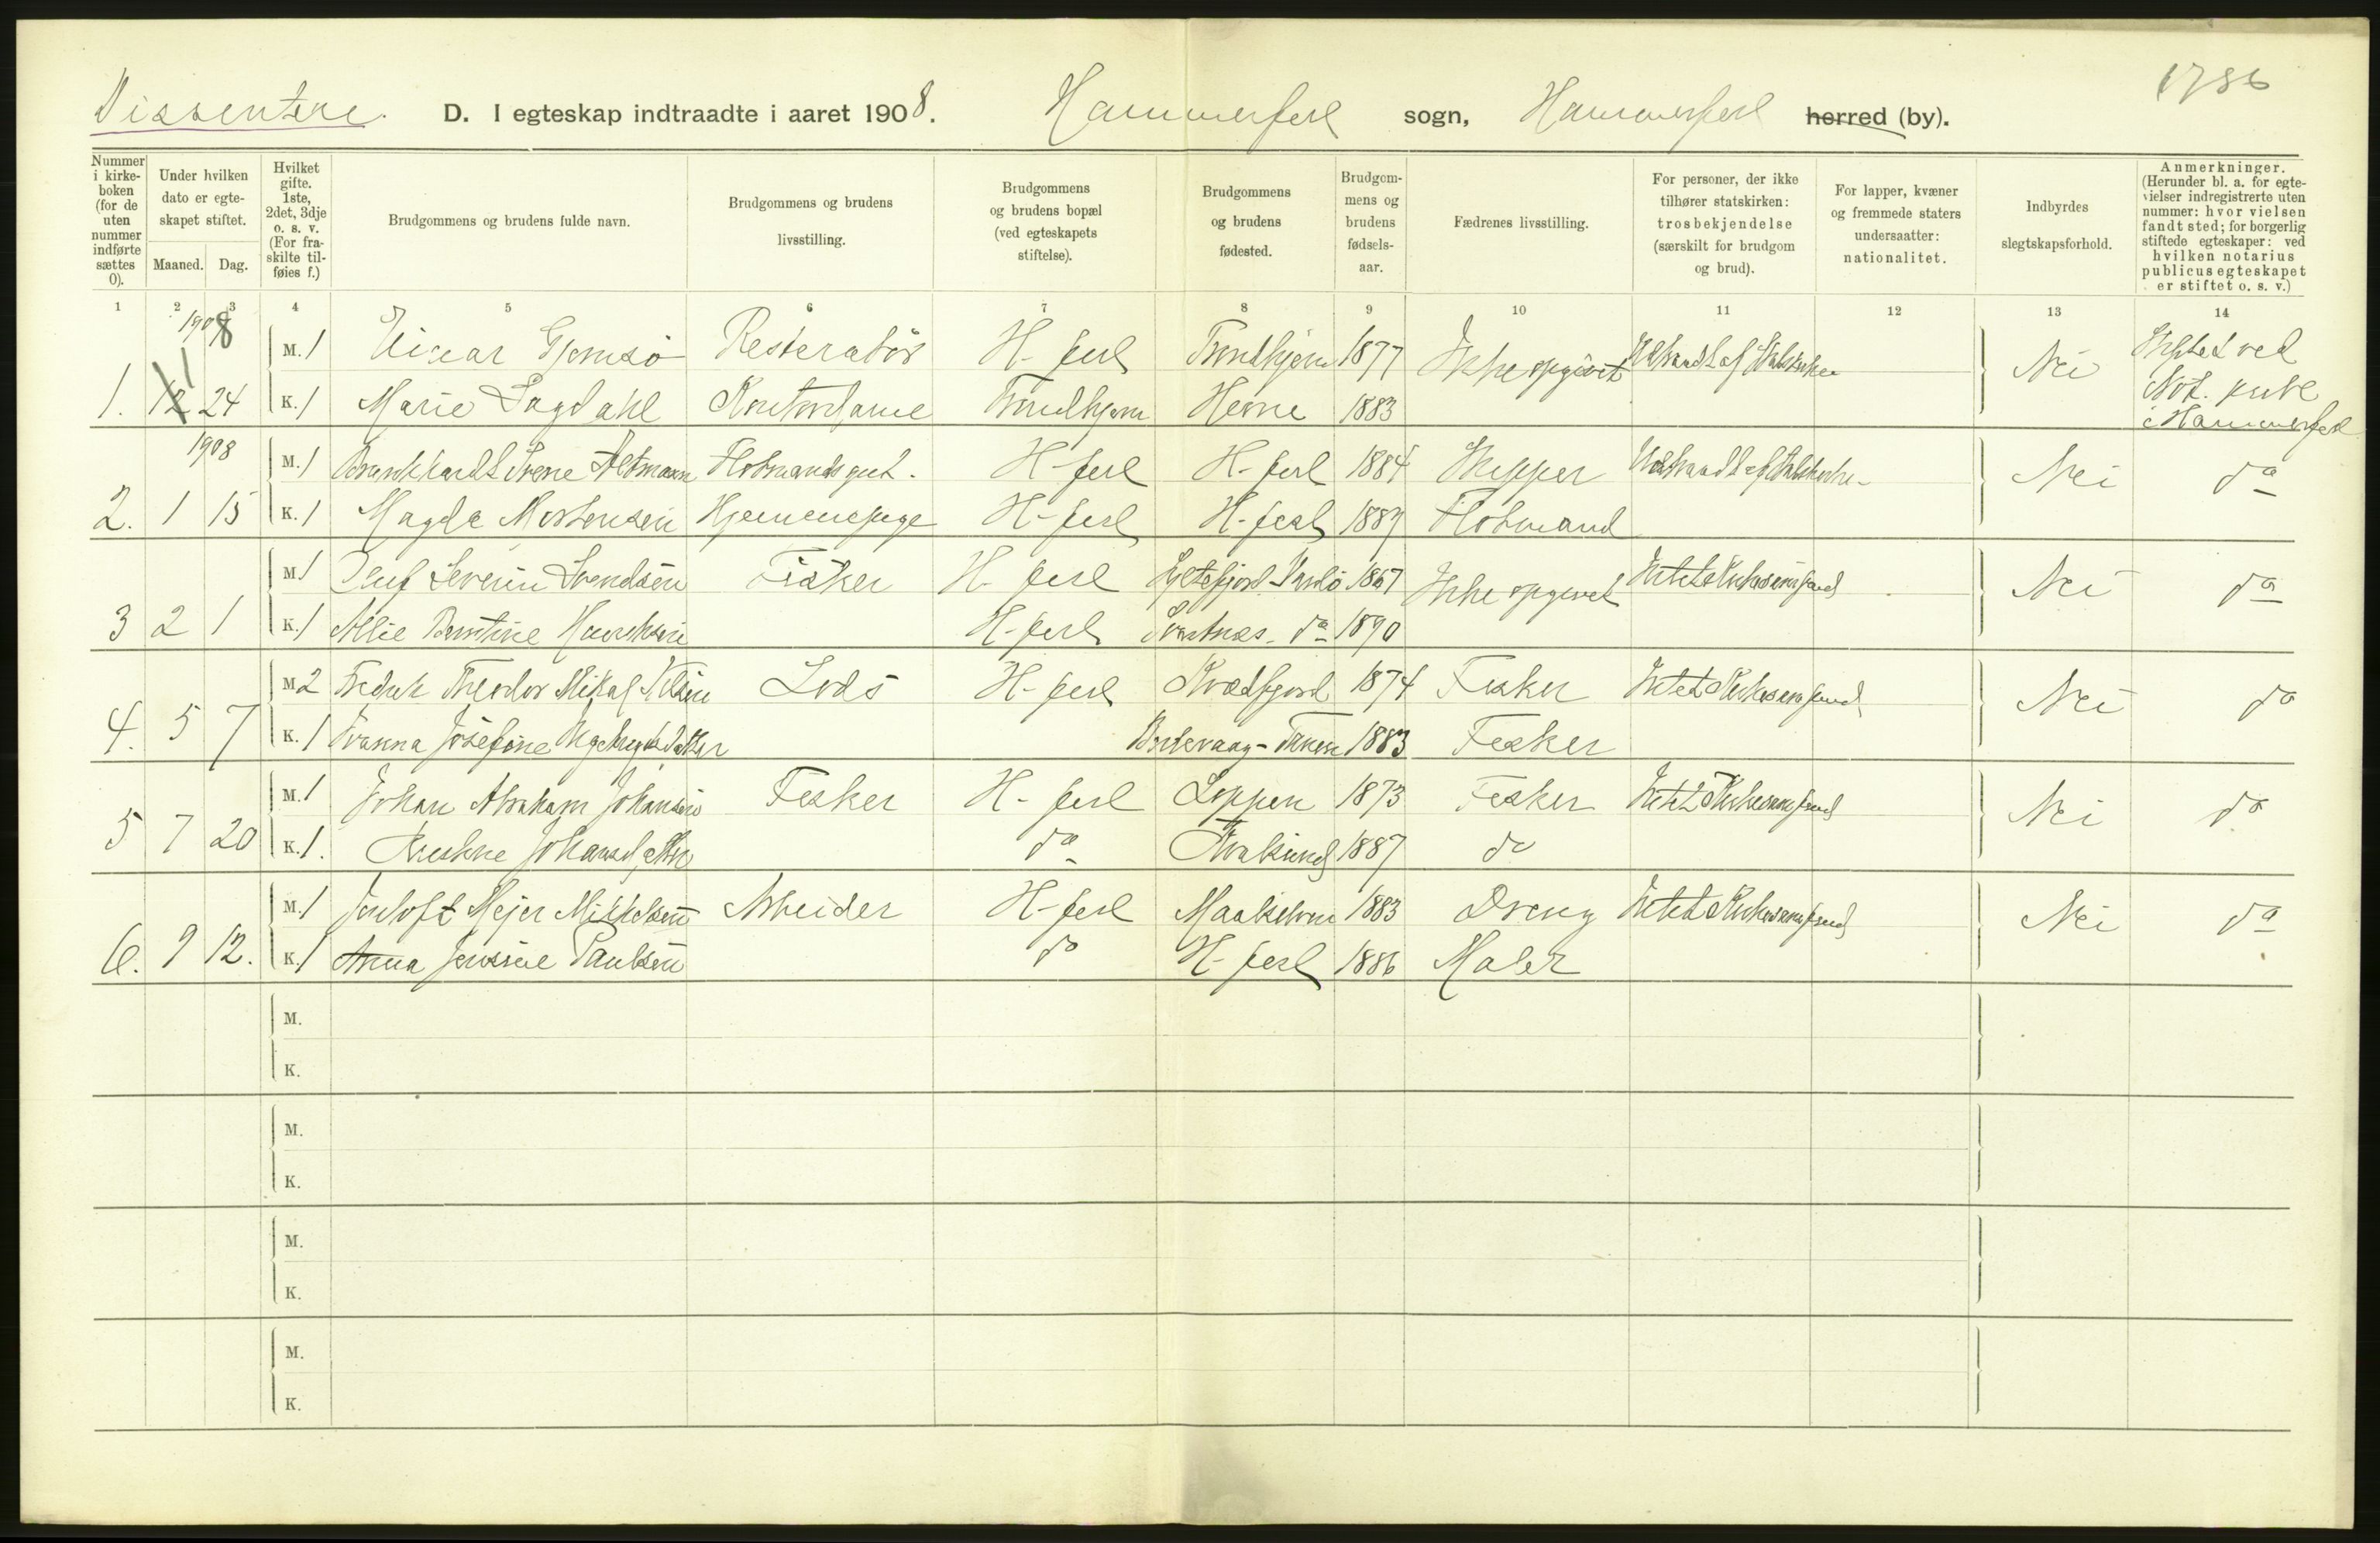 Dissentere. D. I egteskap indtraadte i aaret 1908. Hammerfest sogn, Hammerfest herred (by). 1786
Nummer i kirkeboken (for de uten nummer indførte sættes 0).
Under hvilken dato er egteskapet stiftet.
Maaned. Dag.
Hvilket gifte. 1ste, 2det, 3dje o. s. v. (For fraskilte tilføies f.)
Brudgommens og brudens fulde navn.
Brudgommens og brudens livsstilling.
Brudgommens og brudens bopæl (ved egteskapets stiftelse).
Brudgommens og brudens fødested.
Brudgommens og brudens fødselsaar.
Fædrenes livsstilling.
For personer, der ikke tilhører statskirken: trosbekjendelse (særskilt for brudgom og brud).
For lapper, kvæner og fremmede staters undersaatter: nationalitet.
Indbyrdes slegtskapsforhold.
Anmerkninger. (Herunder bl. a. for egtevielser indregistrerte uten nummer: hvor vielsen fandt sted; for borgerlig stiftede egteskaper: ved hvilken notarius publicus egteskapet er stiftet o. s. v.)
1 2 3 4 5 6 7 8 9 10 11 12 13 14
1908
M. 1 Einar Restauratør H-fest Trondhjem 1877 Ikke opgivet Udtraadt af Statskirken Nei Stiftet ved
1. 12 1 24 K. 1 Marie Kontordame Trondhjem Hevne 1883 Not. publ.
i Hammerfest
1908
M. 1 Flotmandsgut. H-fest H-fest 1884 Skipper Udtraadt af Statskirken Nei do
2. 1 15 K. 1 Magda Mortensen Hjemmepige H-fest H-fest 1889 Flotmand
M. 1 Oluf Severin Svendsen Fisker H-fest Syltefjord Vardö 1867 Ikke opgivet Intet Kirkesamfund Nei do
3 2 1 K. 1 Henriksen H-fest Svartnes do 1890
M. 2 Fredrik Theodor Mikal Nilsen Lods H-fest Kvædfjord 1874 Fisker Intet Kirkesamfund Nei do
4. 5 7 K. 1 Ivanna Josefine Berlevaag - Tanen 1883 Fisker
M. 1 Johan Abraham Johansen Fisker H-fest Loppen 1873 Fisker Intet Kirkesamfund Nei do
5 7 20 K. 1. Kristine Johansdatter do Kvalsund 1887 do
M. 1 Jentoft Mejer Mikkelsen Arbeider H-fest Maalselven 1883 Dreng Intet Kirkesamfund Nei do
6. 9 12. K. 1 Anna Jensine Paulsen do H-fest 1886 Maler
M.
K.
M.
K.
M.
K.
M.
K.